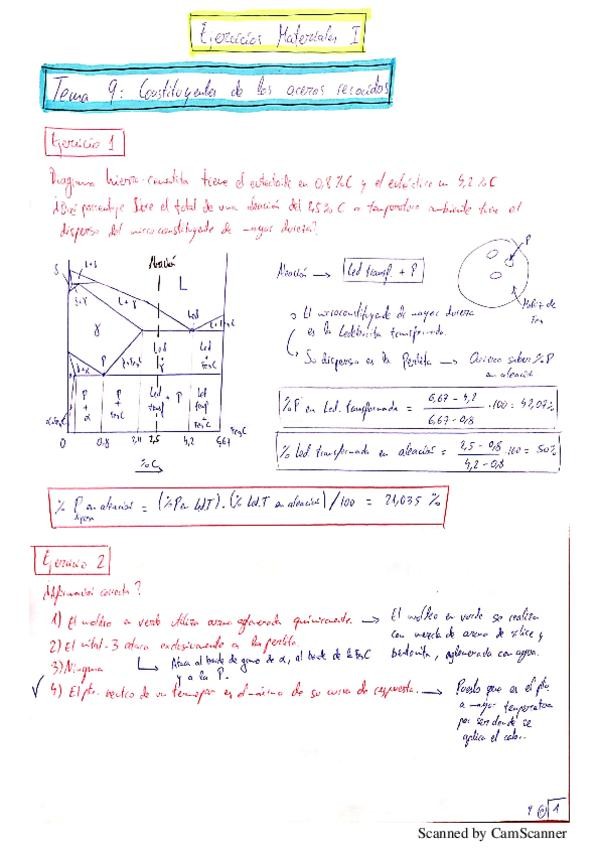 Ejercicios Materiales I
Tema 9: Constituyentes de los aceros recocidos
Ejercicio 1
Diagrama hierro-cementita tiene el eutectoide en 0,8 %C y el eutéctico en 4,2 %C
¿Qué porcentaje sobre el total de una aleación del 2,5 % C a temperatura ambiente tiene el
disperso del microconstituyente de mayor dureza?
Aleación
L
δ
L+δ
L+γ
γ
Led
P
Led
+
γ
P
+
α
P
+
Fe3C
Led
transf
+ P
Led
transf
+
Fe3C
0 0,8 2,11 2,5 4,2 6,67
Fe3C
%C
Aleación → Led transf + P
P
Matriz de
Fe3C
El microconstituyente de mayor dureza
es la Ledeburita transformada.
Su disperso es la Perlita → Quieren saber %P
en aleación
%P en Led. transformada = (6,67 - 4,2) / (6,67 - 0,8) · 100 = 42,07%
% Led. transformada en aleación = (2,5 - 0,8) / (4,2 - 0,8) · 100 = 50%
% P en aleación = (%P en Led T) · (% Led. T en aleación) / 100 = 21,035 %
Ejercicio 2
¿Afirmación correcta?
1) El moldeo en verde utiliza arena aglomerada químicamente. → El moldeo en verde se realiza
con mezcla de arena de sílice y
bentonita, aglomerada con agua.
2) El nital-3 ataca exclusivamente a la perlita.
Ataca al borde de grano de α, al borde de la Fe3C
y a la P.
3) Ninguna
✓ 4) El pto. térmico de un termopar es el máximo de su curva de respuesta. → Puesto que es el pto
a mayor temperatura
por ser donde se
aplica el calor.
1
Scanned by CamScanner